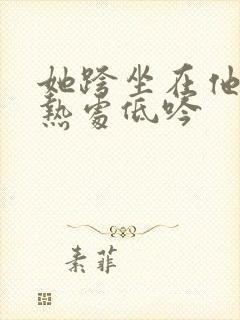 她跨坐在他
热处低吟
素菲